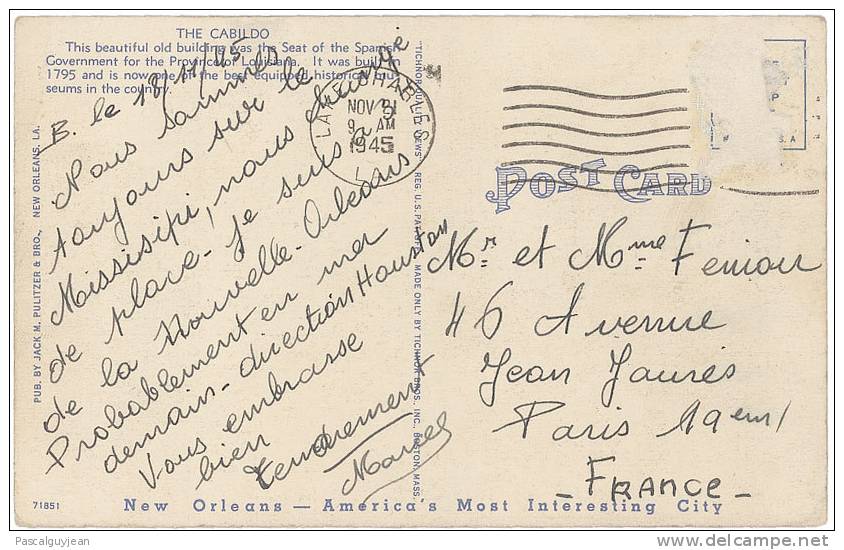 THE CABILDO
This beautiful old building was the Seat of the Spanish
Government for the Province of Louisiana. It was built in
1795 and is now one of the best equipped historical mu-
seums in the country.
B. le 19/11/45
Nous sommes
toujours sur le
Mississipi, nous change
de place. Je suis à
de la Nouvelle-Orléans
Probablement en mer
demain - direction Houston
Vous embrasse
bien
tendrement
Marcel
PUB. BY JACK M. PULITZER & BRO., NEW ORLEANS, LA.
"TICHNOR QUALITY VIEWS" REG. U.S. PAT. OFF. MADE ONLY BY TICHNOR BROS., INC., BOSTON, MASS.
LAKE CHARLES
NOV 21
9 AM
1945
POST CARD
Mr. et Mme Fenioux
46 Avenue
Jean Jaurès
Paris 19eme
- FRANCE -
71851
New Orleans — America's Most Interesting City
Pascalguyjean
delcampe.net